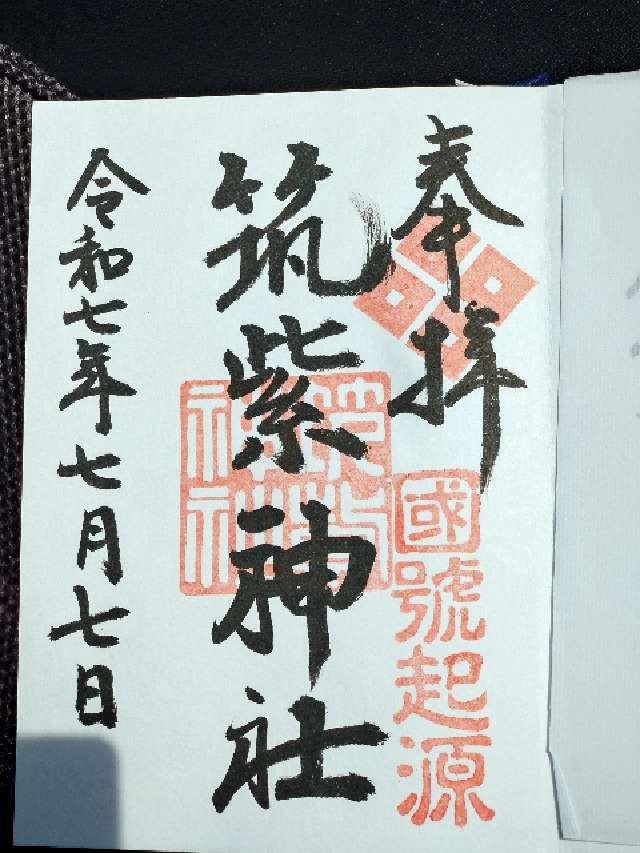 奉拝
國號起源
筑紫神社
筑紫神社
令和七年七月七日